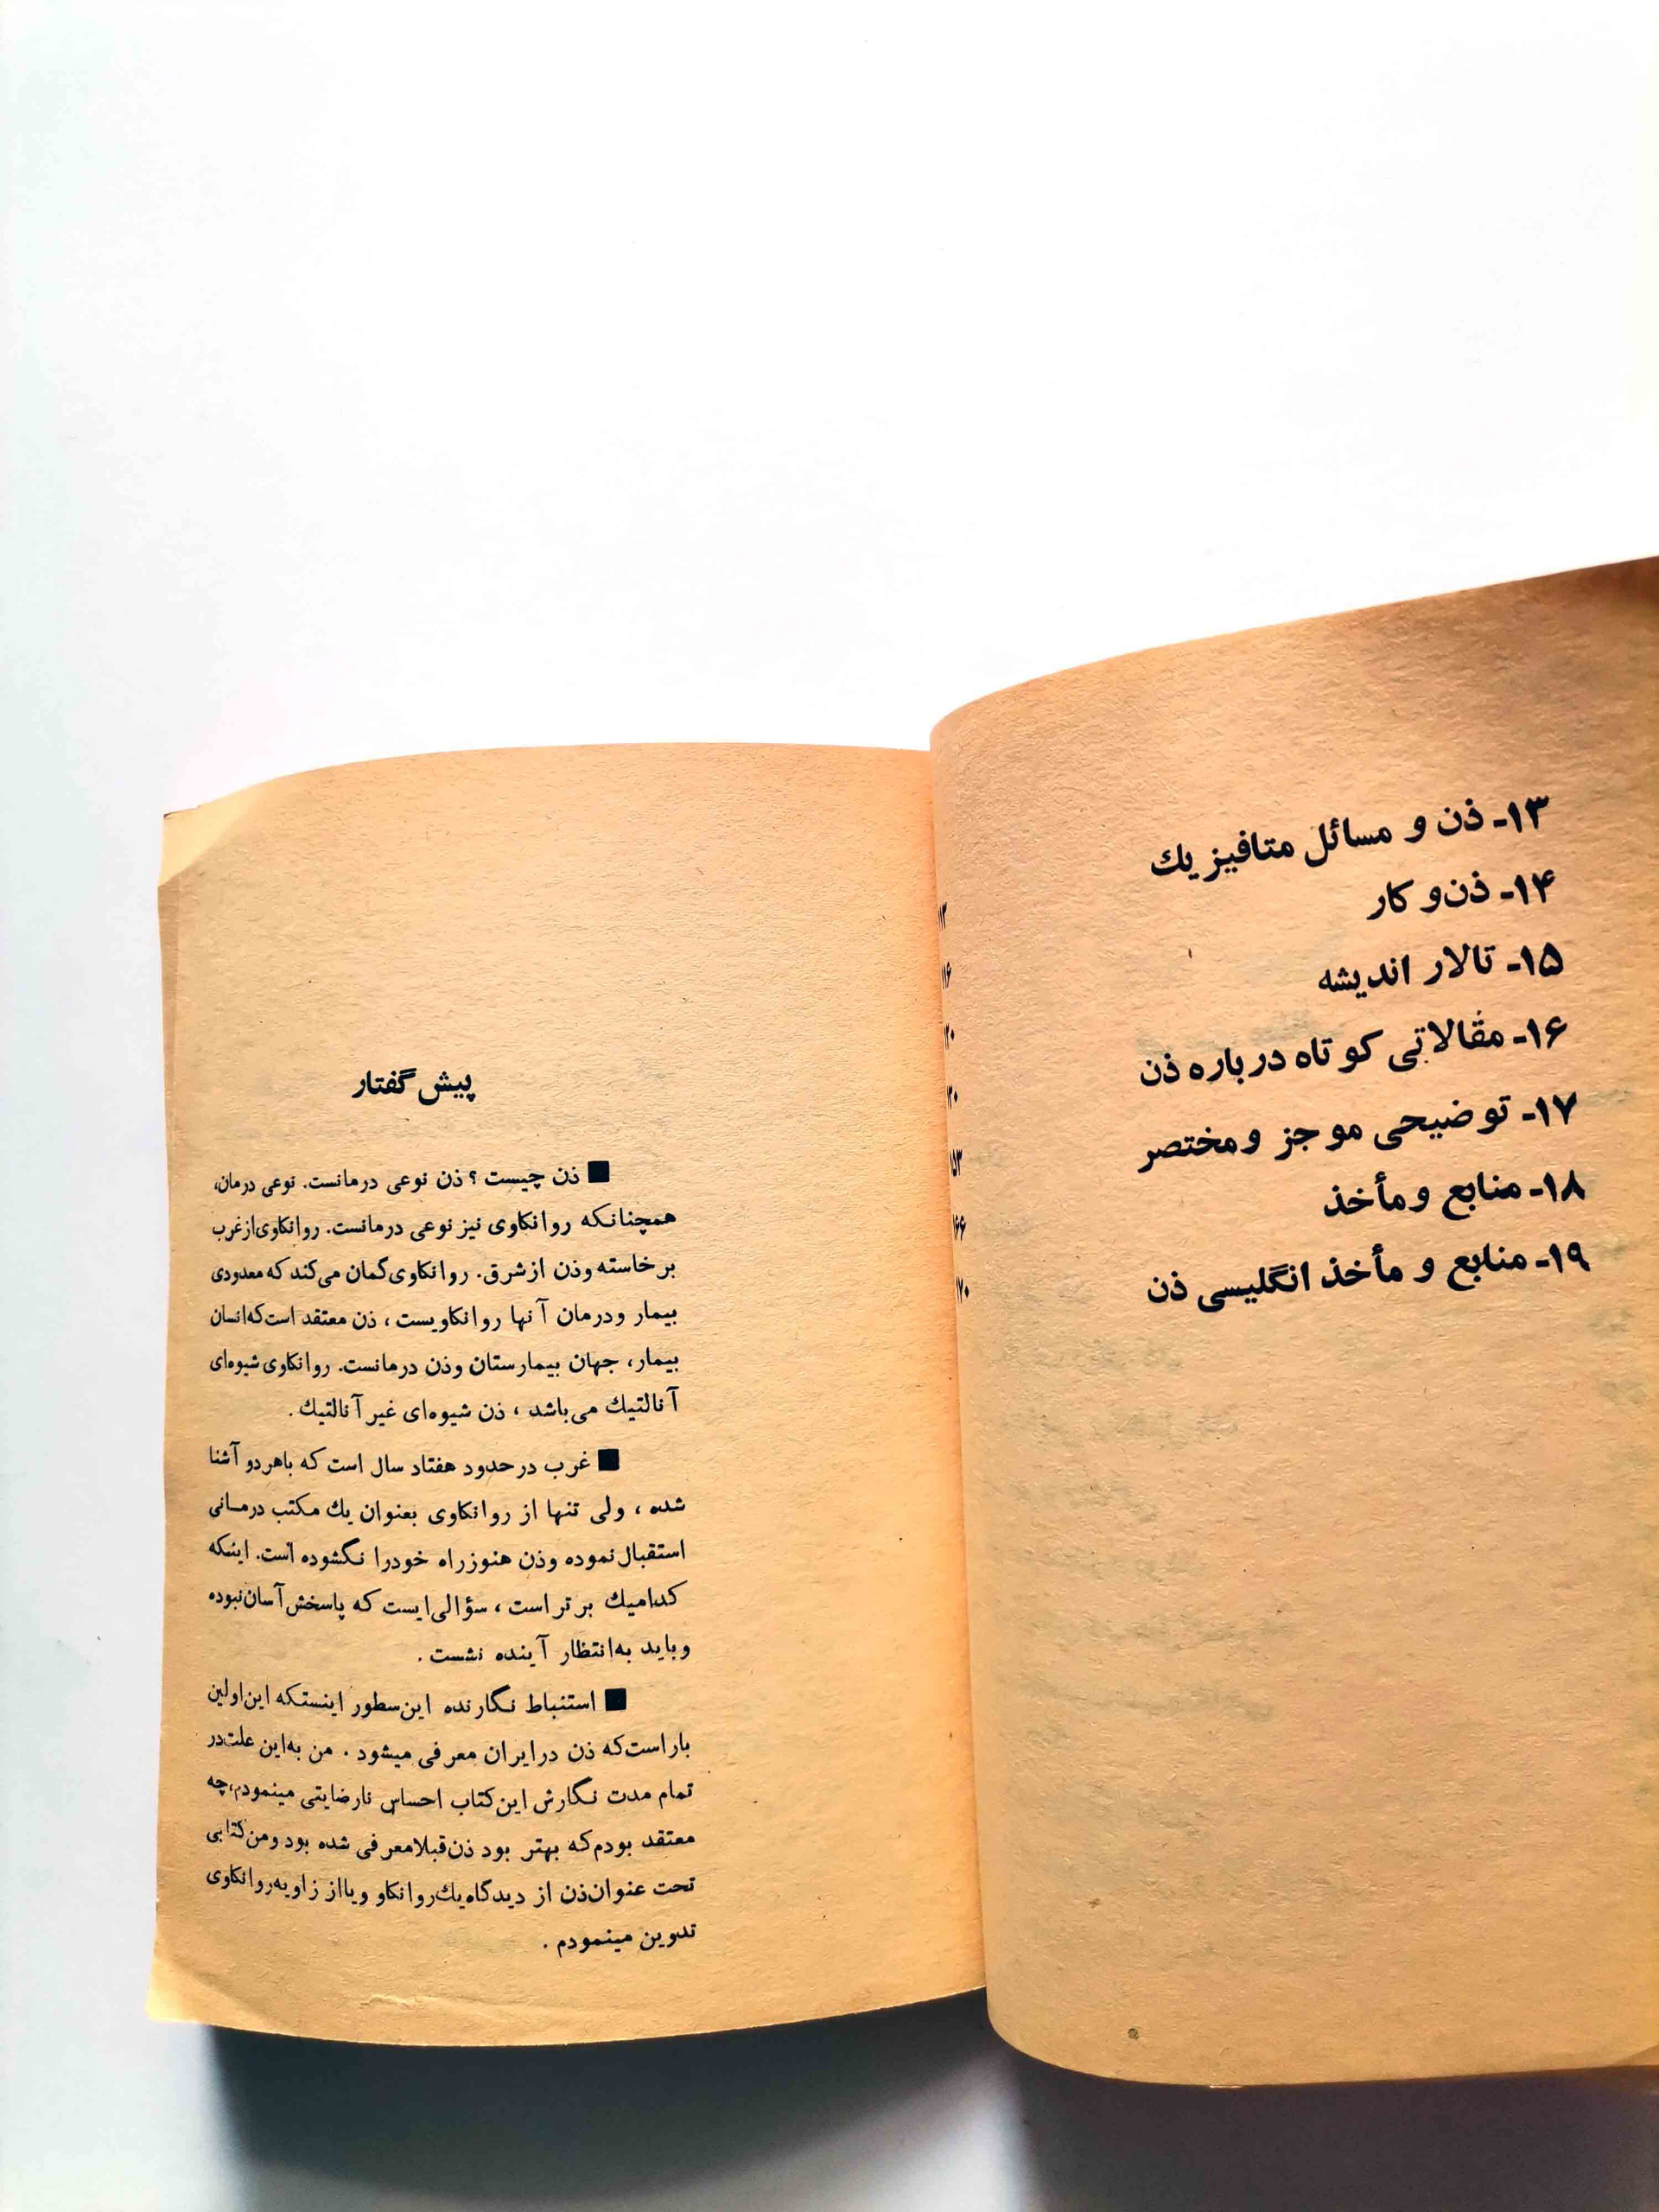 ۱۳- ذن و مسائل متافیزیك
۱۴- ذن و كار
۱۵- تالار اندیشه
۱۶- مقالاتی كوتاه درباره ذن
۱۷- توضیحی موجز ومختصر
۱۸- منابع ومأخذ
۱۹- منابع و مأخذ انگلیسی ذن
۱۶۶
۱۷۰
پیش گفتار
■ ذن چیست ؟ ذن نوعی درمانست. نوعی درمان،
همچنانكه روانكاوی نیز نوعی درمانست. روانكاوی از غرب
برخاسته وذن ازشرق. روانكاوی گمان می‌كند كه معدودی
بیمار ودرمان آنها روانكاویست ، ذن معتقد است كه انسان
بیمار، جهان بیمارستان وذن درمانست. روانكاوی شیوه‌ای
آنالتیك می‌باشد ، ذن شیوه‌ای غیر آنالتیك .
■ غرب درحدود هفتاد سال است كه باهردو آشنا
شده ، ولی تنها از روانكاوی بعنوان یك مكتب درمانی
استقبال نموده وذن هنوزراه خودرا نگشوده است. اینكه
كدامیك برتر است ، سؤالی‌ایست كه پاسخش آسان نبوده
وباید به‌انتظار آینده نشست .
■ استنباط نگارنده این‌سطور اینستكه این‌اولین
باراست‌كه ذن درایران معرفی میشود . من به‌این علت‌در
تمام مدت نگارش این‌كتاب احساس نارضایتی مینمودم،چه
معتقد بودم‌كه بهتر بود ذن‌قبلامعرفی شده بود ومن‌كتابی
تحت عنوان‌ذن از دیدگاه یك‌روانكاو ویااز زاویه‌روانكاوی
تدوین مینمودم .